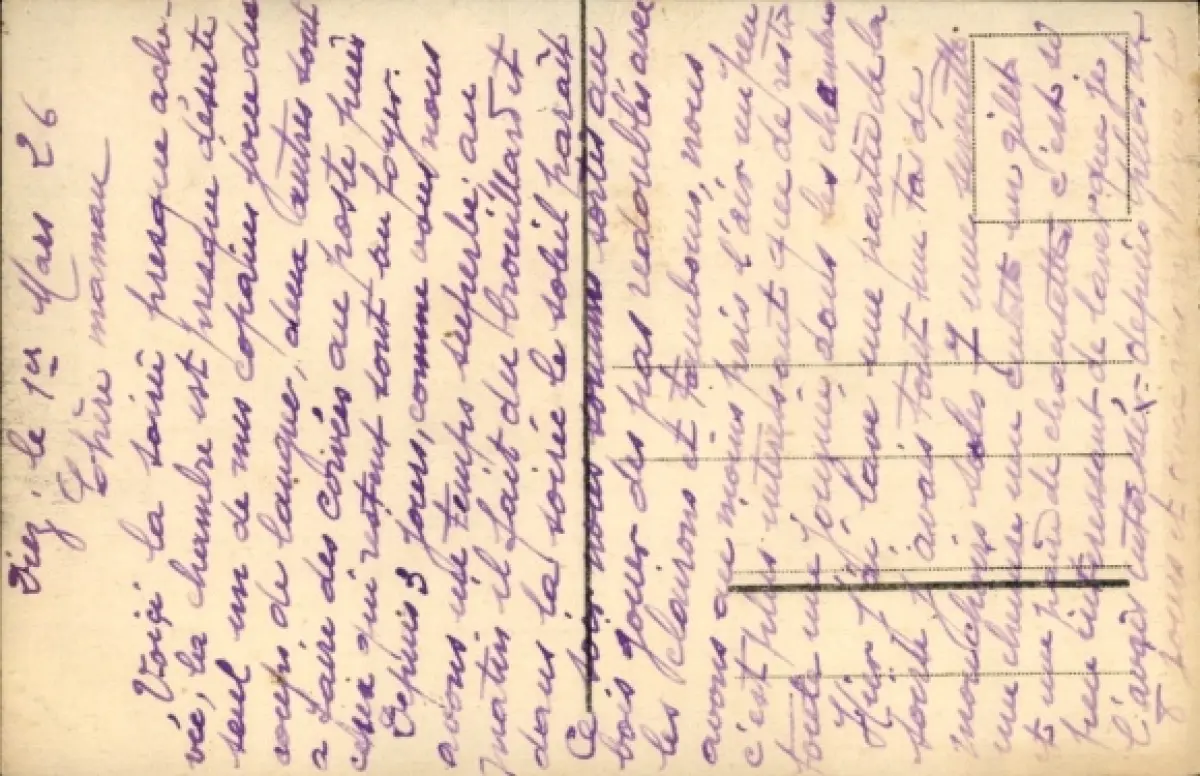 Diez le 1er Mars 26
Chère maman
Voici la soiré presque ache-
vé, la chambre est presque déserte
seul un de mes copains joue des
coups de langue, deux autres sont
a faire des corvées au poste puis
ceux qui restent sont au foyer.
Depuis 3 jours, comme vous nous
avons une temps superbe, au
matin il fait du brouillard et
dans la soirée le soleil paraît
Ce soir nous sommes sortes au
bois jouer des pas redoublés avec
les clairons et tambours, nous
avons au moins pris l'air un peu
c'est plus intéressant que de reste
toute une journé dans les chambres
Hier j'ai lavé une partie de la
soirée j'avais tout un tas de
mouchoirs sales y une serviette.
une chemise une culotte un gilet
et une paire de chaussettes c'est si
peu intéressant de laver que je
l'avais depuis plus de
jours et